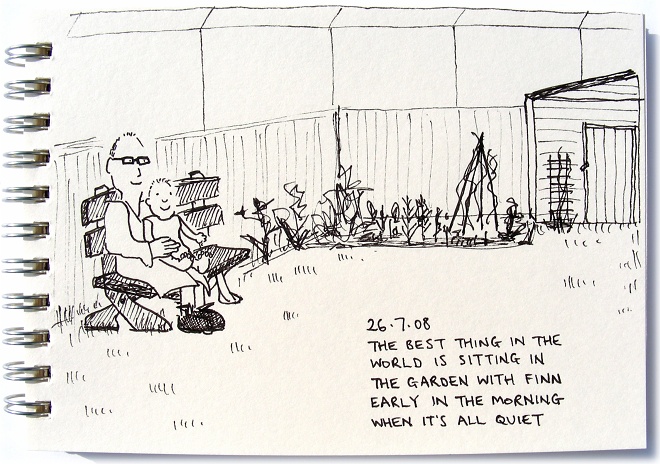 26.7.08
THE BEST THING IN THE
WORLD IS SITTING IN
THE GARDEN WITH FINN
EARLY IN THE MORNING
WHEN IT'S ALL QUIET